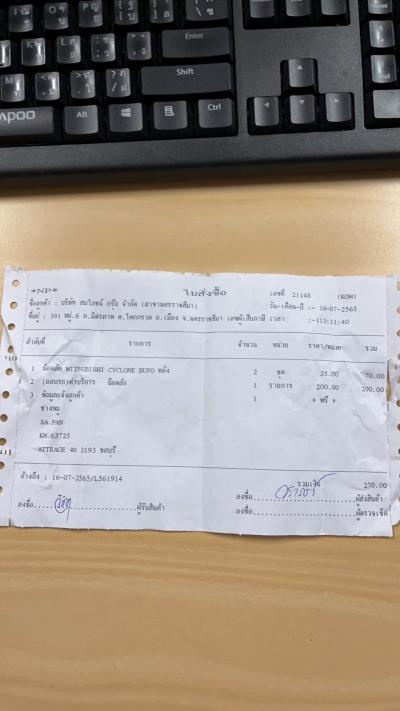 Enter
Shift
Alt
Ctrl
apoo
*NP* ใบสั่งซื้อ เลขที่ 21148 (KOM)
ชื่อลูกค้า : บริษัท สมโภชน์ กรุ๊ป จำกัด (สาขานครราชสีมา) วัน-เดือน-ปี :- 16-07-2565
ที่อยู่ : 391 หมู่.6 ถ.มิตรภาพ ต.โคกกรวด อ.เมือง จ.นครราชสีมา เลขผู้เสียภาษี เวลา :-113:11:40
ลำดับที่ รายการ จำนวน หน่วย ราคา/หน่วย รวม
1 น๊อตล้อ MITSUBISHI CYCLONE BUFO หลัง 2 ชุด 35.00 70.00
2 (อลบรถ)ค่าบริการ น๊อตล้อ 1 รายการ 200.00 200.00
3 ข้อมูลแจ้งลูกค้า 1 * ฟรี *
ช่างหมู
SA.PAN
KM.63725
ATTRAGE 3193 ชลบุรี
อ้างถึง : 16-07-2565/L561914 รวมเงิน 270.00
ลงชื่อ ผู้รับสินค้า ลงชื่อ ผู้ส่งสินค้า
ลงชื่อ ผู้ตรวจเช็ค